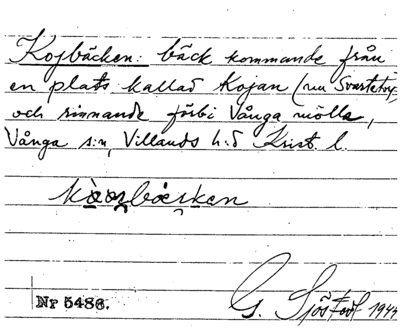 Kojbäcken: bäck kommande från
en plats kallad Kojan (nu
och rinnande förbi Vånga mölla,
Vånga s:n, Villands h:d Krist. l.
Nr 5486.
G. Sjöstedt 1944